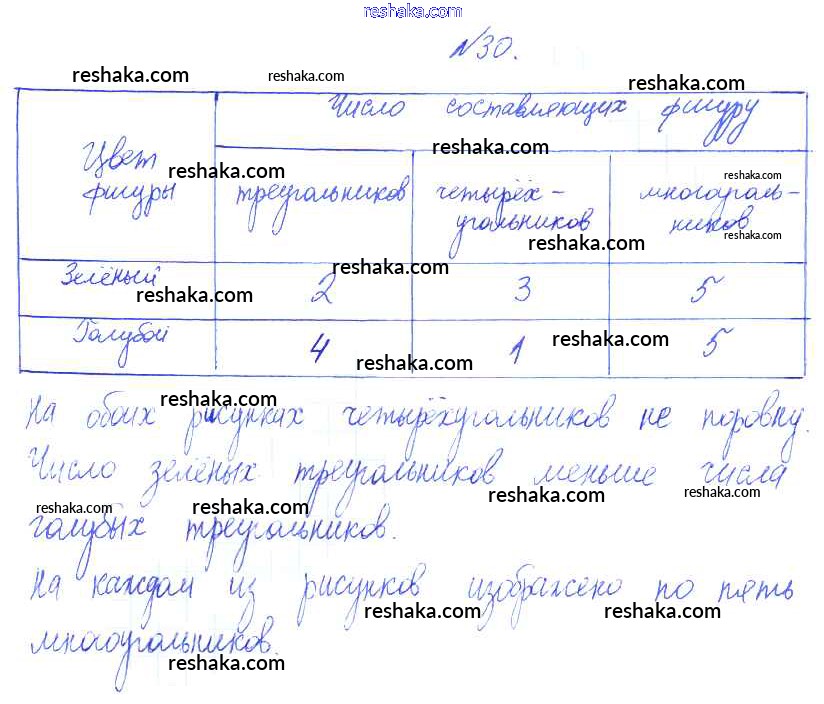 reshaka.com
№30.
reshaka.com reshaka.com reshaka.com
Число составляющих фигуру
Цвет фигуры
reshaka.com reshaka.com reshaka.com
треугольников четырёх- многоуголь-
угольников ников
reshaka.com reshaka.com
reshaka.com
Зелёный 2 3 5
reshaka.com
Голубой 4 1 5
reshaka.com
reshaka.com
reshaka.com
На обоих рисунках четырёхугольников не поровну.
Число зелёных треугольников меньше числа
reshaka.com reshaka.com reshaka.com reshaka.com
голубых треугольников.
На каждом из рисунков изображено по пять
reshaka.com reshaka.com
многоугольников.
reshaka.com